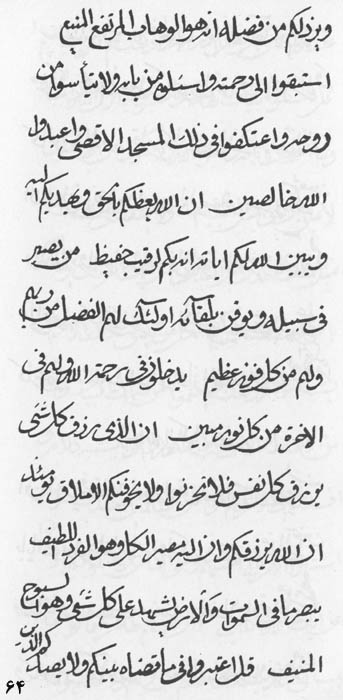 ويزدلكم من فضله انه هو الوهاب المرتفع المنيع
استبقوا الى رحمته واسئلوه من بابه ولا تيأسوا من
روحه واعتكفوا فى ذلك المسجد الاقصى واعبدوا
الله خالصين ان الله يعظكم بالحق ويهديكم اليه
ويبين الله لكم اياته انه بكم لرقيب حفيظ من يصبر
فى سبيله ويوقن بلقائه اولئك لهم الفضل من ربهم
ولهم من كل فوز عظيم يدخلون فى رحمة الله ولهم فى
الاخرة من كل نور مبين ان الذى رزق كل شئ
يرزق كل نفس فلا تحزنوا ولا يخوفنكم الاملاق يومئذ
ان الله يرزقكم وان اليه مصير الكل وهو الفرد اللطيف
يبصر ما فى السموات والارض شهيد على كل شئ وهو السبوح
المنيف قل اعتبروا فى ما قضاه بينكم ولا يصدنكم الذين
٦٤